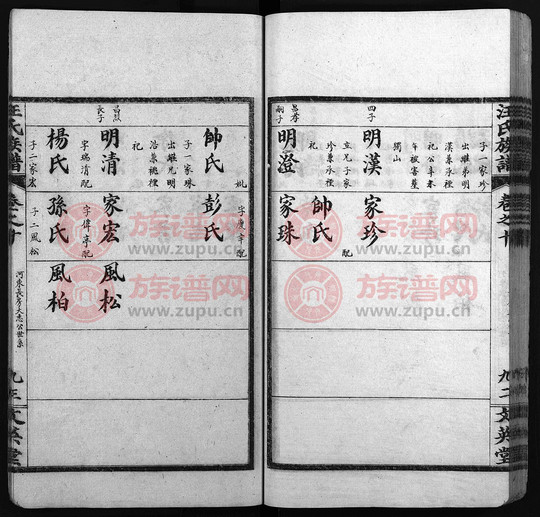 汪氏族譜
卷之十
九二
文英堂
子一家珍
出雄弟明
漢兼承種
祀公辛未
年被害葬
獨山
四子
明漢
家珍
配
立兄子家
珍兼承種
祀
帥氏
嗣子
明澄
家珠
妣
帥氏
彭氏
字慶辛配
子一家珠
出雄兄明
浩兼祧種
祀
長子
明清
字瑞清配
家宏
字偉亭配
風松
楊氏
子二家宏
孫氏
子二風松
風柏
河東長房大志公世系
汪氏族譜
卷之十
九三
文英堂
族谱网
www.zupu.cn
族谱网
www.zupu.cn
族谱网
www.zupu.cn
族谱网
www.zupu.cn